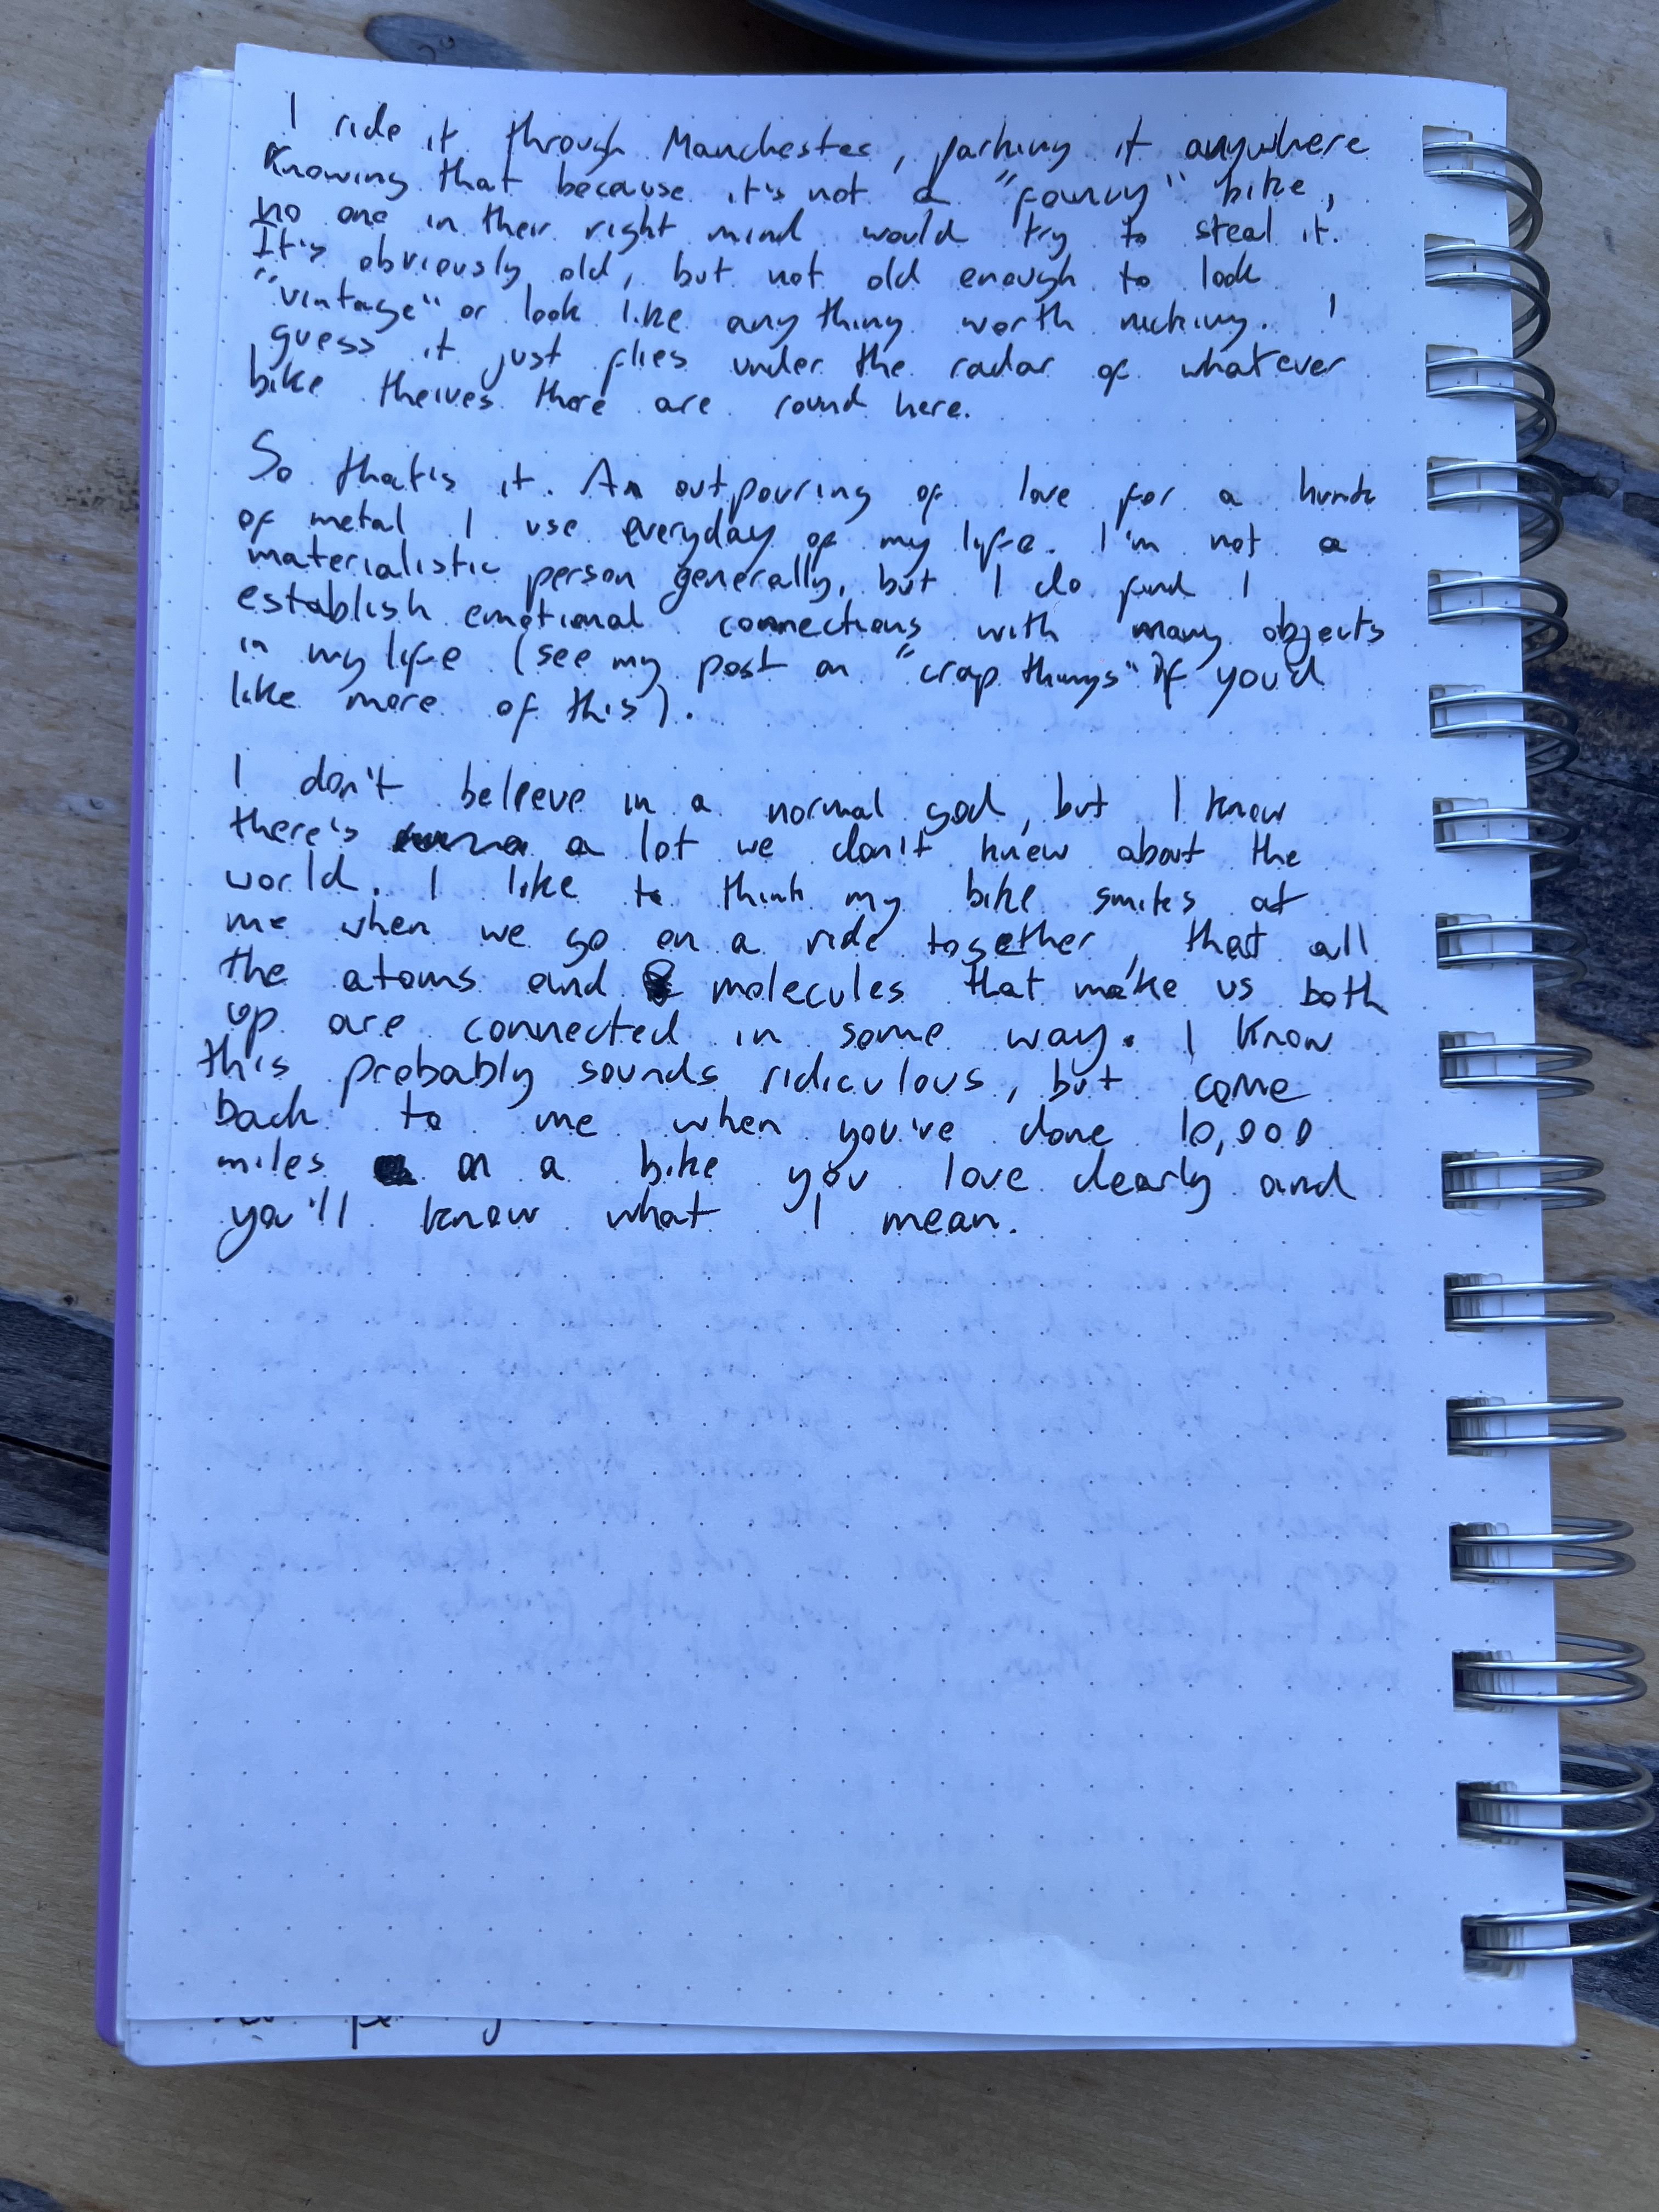 I ride it through Manchester, parking it anywhere
knowing that because it's not a "fancy" bike,
no one in their right mind would try to steal it.
It's obviously old, but not old enough to look
"vintage" or look like anything worth nicking. I
guess it just flies under the radar of whatever
bike theives there are round here.
So that's it. An outpouring of love for a hunk
of metal I use everyday of my life. I'm not a
materialistic person generally, but I do find I
establish emotional connections with many objects
in my life (see my post on "crap things" if you'd
like more of this).
I don't beleeve in a normal god, but I know
there's a lot we don't know about the
world. I like to think my bike smiles at
me when we go on a ride together, that all
the atoms and molecules that make us both
up are connected in some way. I know
this probably sounds ridiculous, but come
back to me when you've done 10,000
miles on a bike you love dearly and
you'll know what I mean.